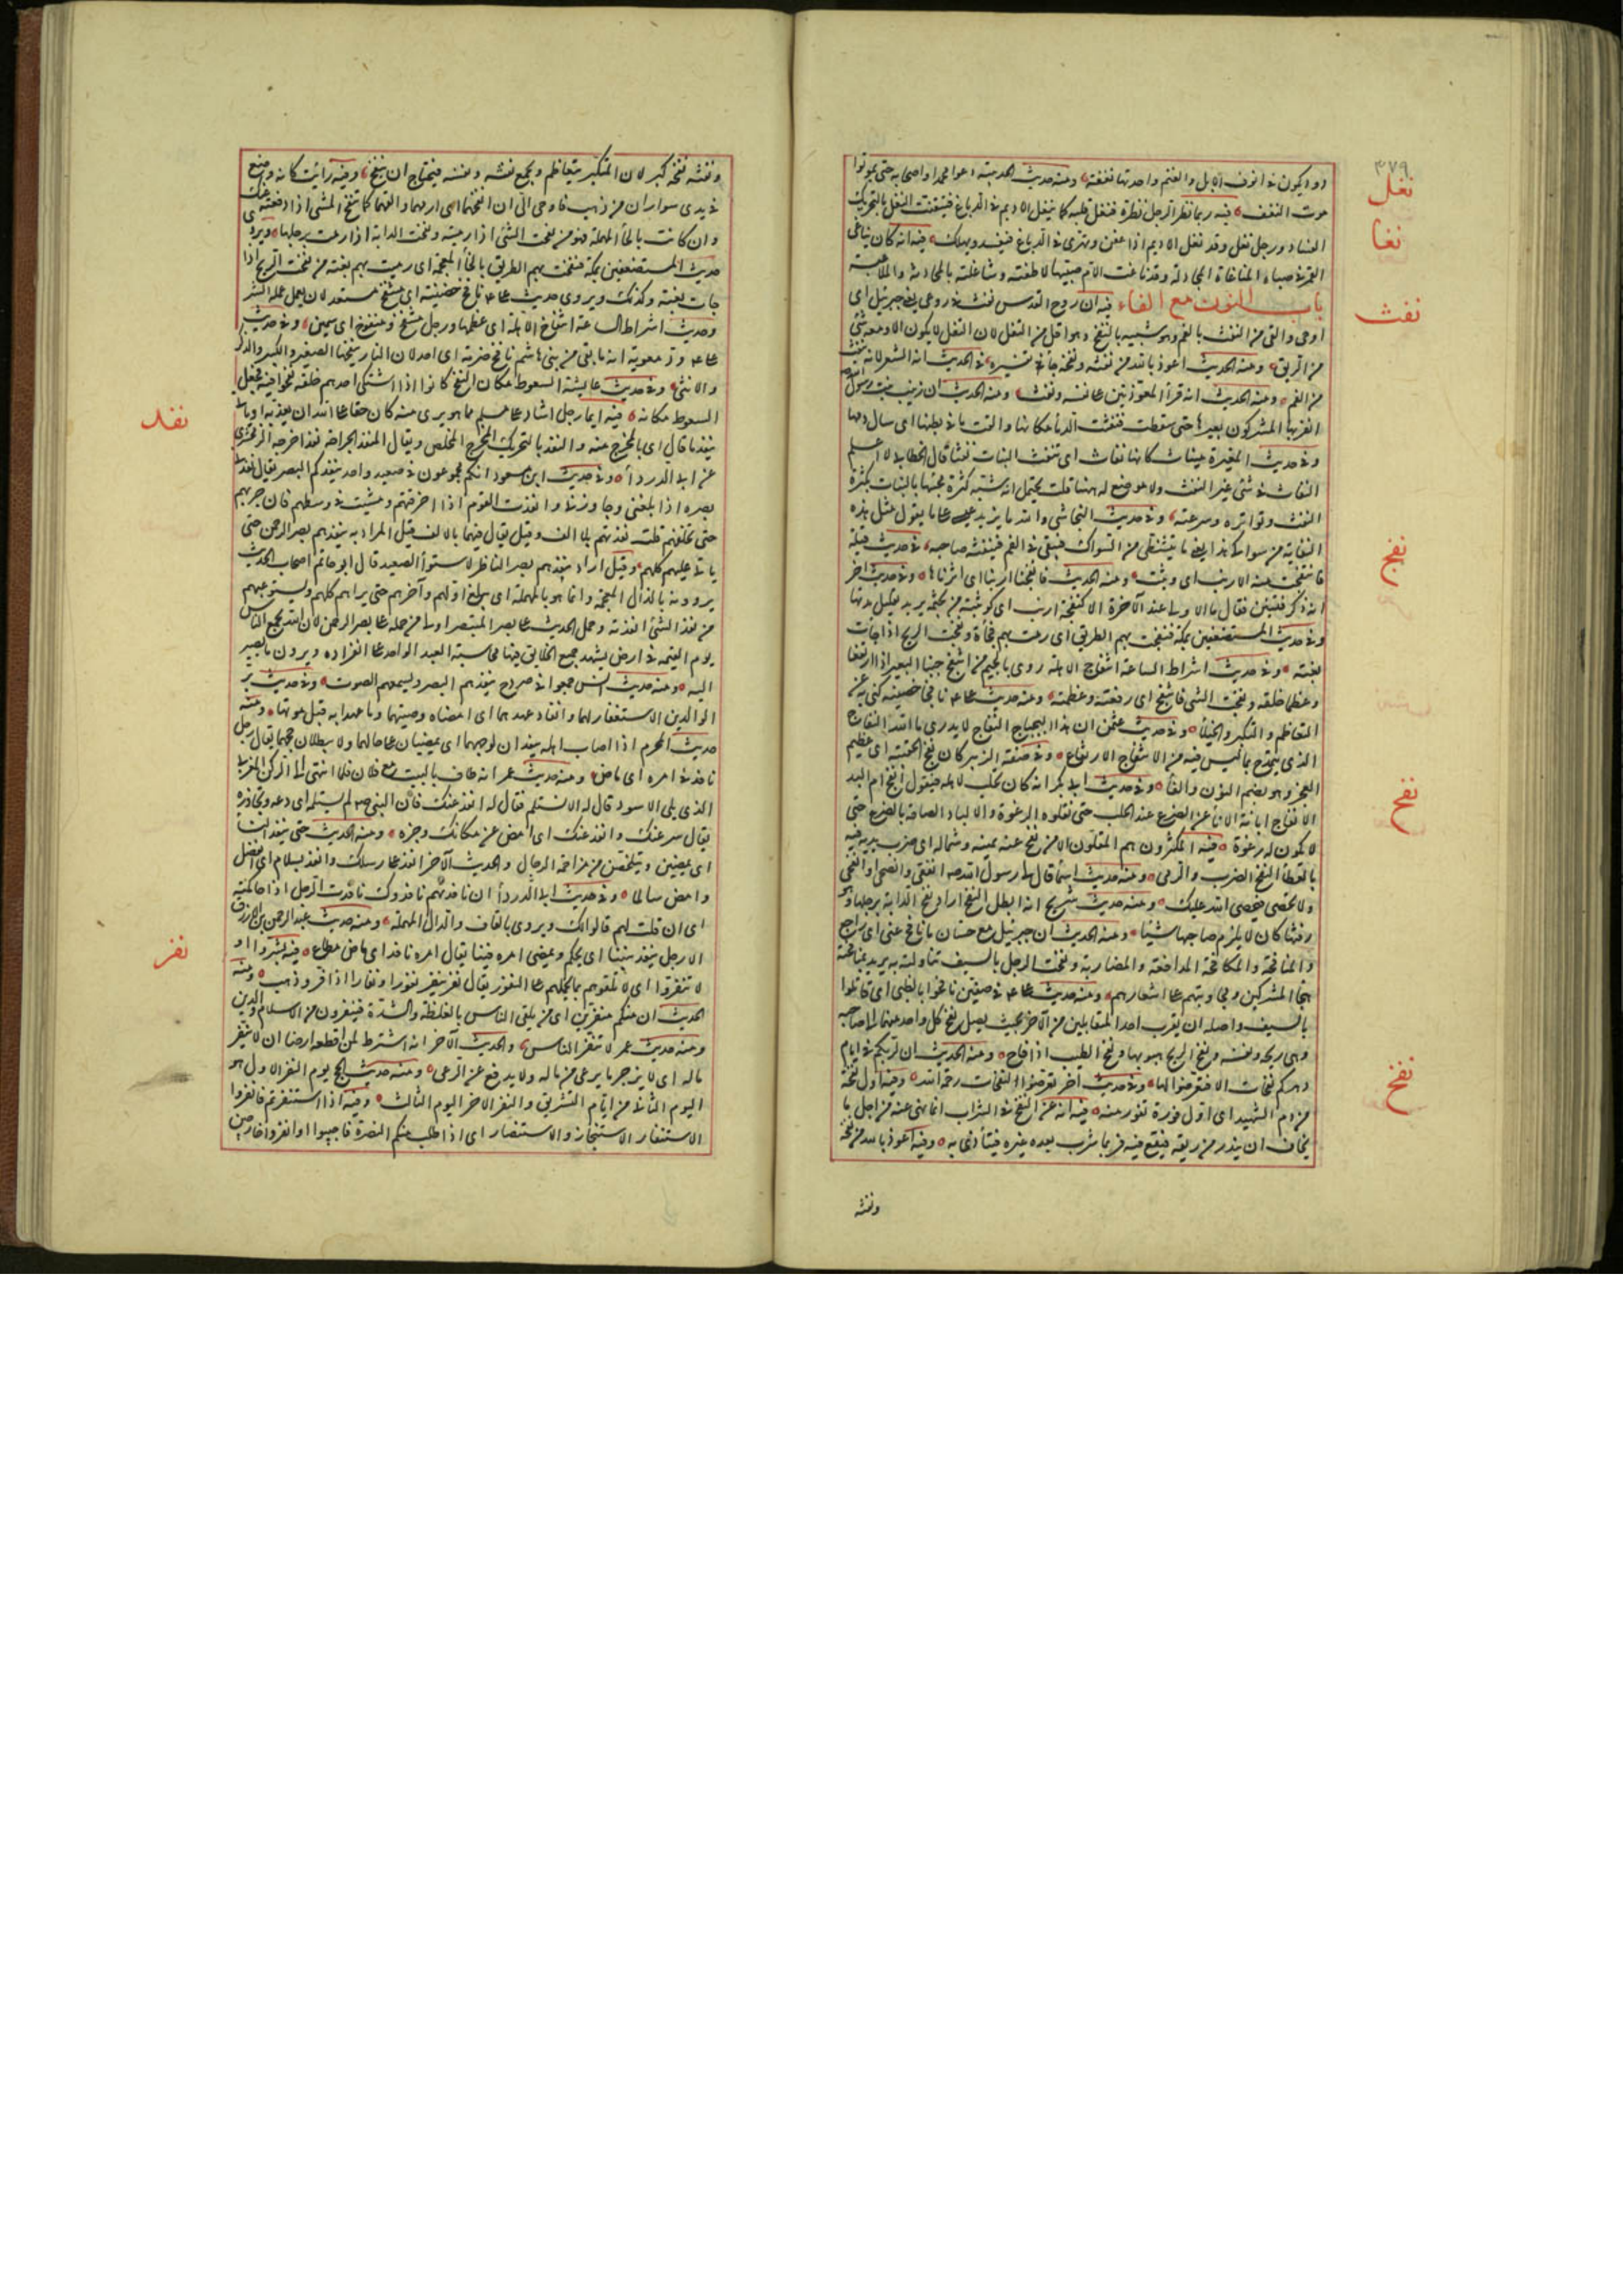 ٣٧٩
دود يكون في انوف الابل والغنم واحدتها نغفة ومنه حديث الحديبية دعوا محمدا واصحابه حتى يموتوا
نغل
موت النغف فيه ربما نظر الرجل نظرة فنغل قلبه كما ينغل الاديم في الدباغ فيتفتت النغل بالتحريك
نغا
الفساد ورجل نغل وقد نغل الاديم اذا عفن وتهرى في الدباغ فيفسد ويهلك فيه انه كان يناغى
القمر في صباه المناغاة المحادثة وقد ناغت الام صبيها لاطفته وشاغلته بالمحادثة والملاعبة
نفث
باب النون مع الفاء فيه ان روح القدس نفث في روعى يعنى جبرئيل اى
اوحى والقى من النفث بالفم وهو شبيه بالنفخ وهو اقل من التفل لان التفل لا يكون الا ومعه شئ
من الريق ومنه الحديث اعوذ بالله من نفثه ونفخه جاء في تفسيره في الحديث انه الشعر لانه ينفث
من الفم ومنه الحديث انه قرأ المعوذتين على نفسه ونفث ومنه الحديث ان زينب بنت رسول الله
انفر بها المشركون بعيرها حتى سقطت فنفثت الدماء مكانها والقت ما في بطنها اى سال دمها
وفي حديث المغيرة مئناث كانها نفاث اى تنفث البنات نفثا قال الخطابى لا اعلم
النفاث في شئ غير النفث ولا موضع له ههنا قلت يحتمل انه شبه كثرة مجيئها بالبنات بكثرة
النفث وتواتره وسرعته وفي حديث النجاشى والله ما يزيد عيسى على ما يقول مثل هذه
النفاثة من سواكى هذا يعنى ما يتشظى من السواك فيبقى في الفم فينفثه صاحبه في حديث قيلة
نفج
فانتفجت منه الارنب اى وثبت ومنه الحديث فانفجنا ارنبا اى اثرناها وفي حديث اخر
انه ذكر فتنتين فقال ما الاولى عند الآخرة الا كنفجة ارنب اى كوثبته من مجثمه يريد تقليل مدتها
وفي حديث المستضعفين بمكة فنفجت بهم الطريق اى رمت بهم فجأة ونفجت الريح اذا جاءت
بغتة وفي حديث اشراط الساعة انتفاج الاهلة روى بالجيم من انتفج جنبا البعير اذا ارتفعا
وعظما خلقة ونفجت الشئ فانتفج اى رفعته وعظمته ومنه حديث على نافجا حضنيه كنى به عن
التعاظم والتكبر والخيلاء وفي حديث عثمن ان هذا البجباج النفاج لا يدرى ما الله النفاج
الذى يتمدح بما ليس فيه من الانتفاج الارتفاع وفي صفة الزبير كان نفج الحقيبة اى عظيم
العجز وهو بضم النون والفاء وفي حديث ابى بكر انه كان يحلب لاهله فيقول انفج ام البد
الانفاج ابانة الاناء عن الضرع عند الحلب حتى تعلوه الرغوة والالباد الصاقه بالضرع حتى
نفح
لا تكون له رغوة فيه المكثرون هم المقلون الا من نفح فيه يمينه وشماله اى ضرب يديه فيه
بالعطاء النفح الضرب والرمى ومنه حديث اسماء قال لى رسول الله ص انفقى وانضحى او انفحى
ولا تحصى فيحصى الله عليك ومنه حديث شريح انه ابطل النفح اراد نفح الدابة برجلها وهو
رفسها كان لا يلزم صاحبها شيئا ومنه الحديث ان جبرئيل مع حسان ما نافح عنى اى دافع
والمنافحة والمكافحة المدافعة والمضاربة ونفحت الرجل بالسيف تناولته به يريد بمنافحته
هجاء المشركين ومجاوبتهم على اشعارهم ومنه حديث على في صفين نافحوا بالظبى اى قاتلوا
بالسيف واصله ان يقرب احد المتقابلين من الآخر بحيث يصل نفح كل واحد منهما الى صاحبه
وهى ريحه ونفسه ونفح الريح هبوبها ونفح الطيب اذا فاح ومنه الحديث ان لربكم في ايام
نفخ
دهركم نفحات الا فتعرضوا لها وفي حديث اخر تعرضوا لنفحات رحمة الله وفيه اول نفحة
من دم الشهيد اى اول فورة تفور منه فيه انه نهى عن النفخ في الشراب انما نهى عنه من اجل ما
يخاف ان يبدر من ريقه فيقع فيه فربما شرب بعده غيره فيتأذى به وفيه اعوذ بالله من نفخه
ونفثه
ونفثه نفخه كبره لان المتكبر يتعاظم ويجمع نفسه ونفسه فيحتاج ان ينفخ وفيه رأيت كانه وضع
في يدى سواران من ذهب فاوحى الى ان انفخهما اى ارمهما والقهما كما تنفخ الشئ اذا دفعته عنك
وان كانت بالحاء المهملة فهو من نفحت الشئ اذا رميته ونفحت الدابة اذا رمحت برجلها ويروى
حديث المستضعفين بمكة فنفخت بهم الطريق بالخاء المعجمة اى رمت بهم بغتة من نفخت الريح اذا
جاءت بغتة وكذلك ويروى حديث على نافخ حضنيه اى منتفخ مستعد لان يعمل عمله الشر
وحديث اشراط الساعة انتفاخ الاهلة اى عظمها ورجل منتفخ ومنفوخ اى سمين وفي حديث
على ود معوية انه ما بقى من بنى هاشم نافخ ضرمة اى احد لان النار ينفخها الصغير والكبير والذكر
والانثى وفي حديث عايشة السعوط مكان النفخ كانوا اذا اشتكى احدهم حلقه نفخوا فيه فجعل
نفذ
السعوط مكانه فيه ايما رجل اشاد على مسلم بما هو برى منه كان حقا على الله ان يعذبه او ياتى
بنفذ ما قال اى بالمخرج منه والنفذ بالتحريك المخرج والمخلص ويقال المنفذ الجراحة نفذ اخرجه الزمخشرى
عن ابى الدرداء وفي حديث ابن مسعود انكم مجموعون في صعيد واحد ينفدكم البصر يقال نفذنى
بصره اذا بلغنى وجاوزنى وانفذت القوم اذا اخرقتهم ومشيت في وسطهم فان جزتهم
حتى تخلفهم قلت نفذتهم بلا الف وقيل يقال فيهما بالالف قيل المراد به ينفذهم بصر الرحمن حتى
ياتى عليهم كلهم وقيل اراد ينفذهم بصر الناظر لاستواء الصعيد قال ابو حاتم اصحاب الحديث
يروونه بالذال المعجمة وانما هو بالمهملة اى يبلغ اولهم وآخرهم حتى يراهم كلهم ويستوعبهم
من نفد الشئ انفدته وحمل الحديث على بصر المبصر اولى من حمله على بصر الرحمن لان الله يجمع الناس
يوم القيمة في ارض يشهد جميع الخلايق فيها محاسبة العبد الواحد على انفراده ويرون ما يصير
اليه ومنه حديث انس جمعوا في صردح ينفذهم البصر ويسمعهم الصوت وفي حديث بر
الوالدين الاستغفار لهما وانفاذ عهدهما اى امضاء وصيتهما وما عهدا به قبل موتهما ومنه
حديث المحرم اذا اصاب اهله ينفذان لوجههما اى يمضيان على حالهما ولا يبطلان حجهما يقال رجل
نافذ في امره اى ماض ومنه حديث عمر انه طاف بالبيت مع فلان فلما انتهى الى الركن الغربى
الذى يلى الاسود قال له الا تستلم فقال له انفذ عنك فان النبى ص لم يستلمه اى دعه وتجاوزه
يقال سر عنك وانفذ عنك اى امض عن مكانك وجزه ومنه الحديث حتى ينفذ النساء
اى يمضين ويتخلصن من مزاحمة الرجال والحديث الآخر انفذ على رسلك وانفذ بسلام اى انفصل
وامض سالما وفي حديث ابى الدرداء ان نافذتهم نافذوك نافذت الرجل اذا حاكمته
اى ان قلت لهم قالوا لك ويروى بالقاف والدال المهملة ومنه حديث عبد الرحمن بن الازرق
نفر
الا رجل ينفذ بيننا اى يحكم ويمضى امره فينا يقال امره نافذ اى ماض مطاع فيه بشروا و
لا تنفروا اى لا تلقوهم بما يحملهم على النفور يقال نفر ينفر نفورا ونفارا اذا فر وذهب ومنه
الحديث ان منكم منفرين اى من يلقى الناس بالغلظة والشدة فينفرون من الاسلام والدين
ومنه حديث عمر لا تنفر الناس والحديث الآخر انه اشترط لمن اقطعه ارضا ان لا ينفر
ماله اى لا يزجر ما يرعى من ماله ولا يدفع عن الرعى ومنه حديث الحج يوم النفر الاول هو
اليوم الثانى من ايام التشريق والنفر الاخر اليوم الثالث وفيه اذا استنفرتم فانفروا
الاستنفار الاستنجاد والاستنصار اى اذا طلب منكم النصرة فاجيبوا وانفروا خارجين